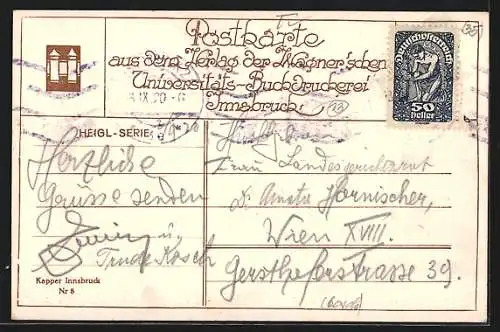 Postkarte
aus dem Verlag der Wagner'schen
Universitäts-Buchdruckerei
Innsbruck
Deutschösterreich
50
Heller
IX.20-6
HEIGL-SERIE
Herzliche
Grüsse senden
u.
Trude Kosch
Frau Landesgerichtsrat
Dr. Amata Harnischer,
Wien XVIII.
Gersthoferstrasse 39.
Kapper Innsbruck
Nr 8